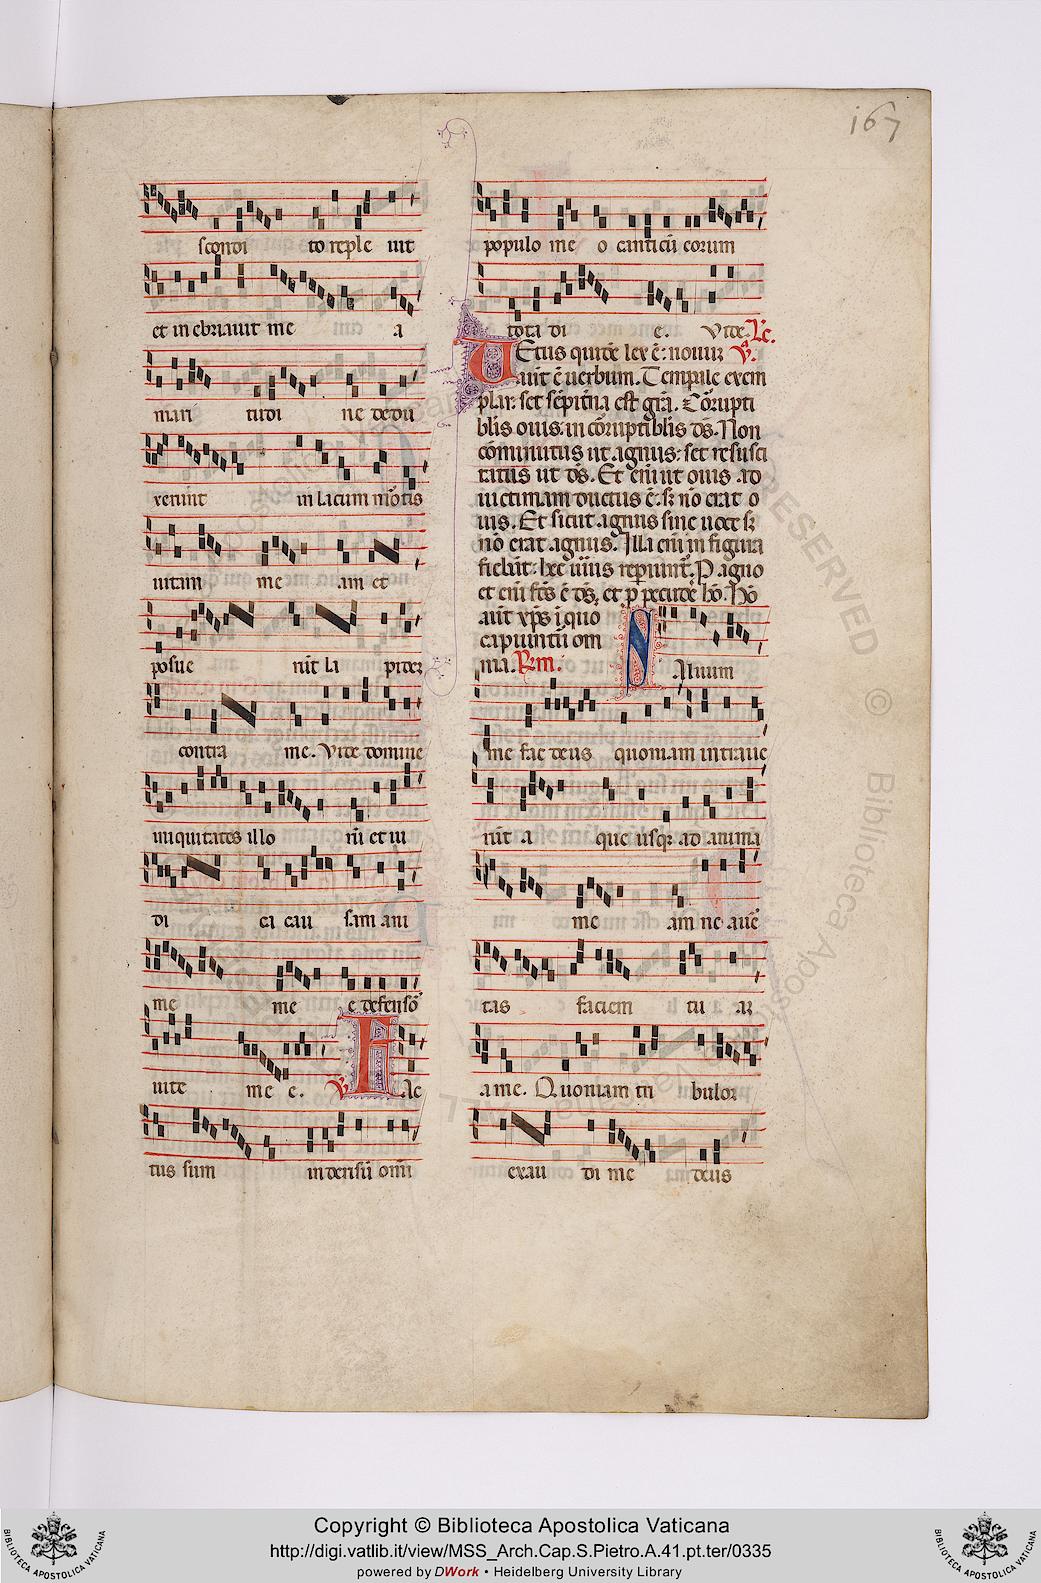 167
scondi to reple uit
et inebriauit me a
mari tudi ne dedu
xerunt in lacum mortis
uitam me am et
posue runt la pidem
contra me. Vide domine
iniquitates illo rū et iu
di ca cau sam ani
me me e defensō
uite me e. V̄. F Ac
tus sum in derisū omī
populo me o canticū eorum
tota di e. Vide. Lc.
VEtus quidē lex ē: nouuȝ V̄.
aūt ē uerbum. Temporale exem
plar: set sēpitna est grā. Corrupti
blis ouis: incorruptiblis dōs. Non
cōminutus ut agnus: set resusci
tatus ut dōs. Et eniȝ ut ouis ad
uictimam ductus ē: sȝ nō erat o
uis. Et sicut agnus sine uoce sȝ
nō erat agnus. Illa eniȝ in figura
fiebāt: hec uīus repiunt. P agno
et eniȝ fcūs ē dōs, et p pecude hō. Hō
aūt xp̄s i quo
capiuntū om
nia. Rm. SAluum
me fac deus quoniam intraue
rūt a que usqȝ ad animā
me am ne auer
tas faciem tu aȝ
a me. Quoniam tri bulor
exau di me deus
RESERVED © Biblioteca Apostolica Vaticana
Copyright © Biblioteca Apostolica Vaticana
http://digi.vatlib.it/view/MSS_Arch.Cap.S.Pietro.A.41.pt.ter/0335
powered by DWork • Heidelberg University Library
BIBLIOTECA APOSTOLICA VATICANA
BIBLIOTECA APOSTOLICA VATICANA